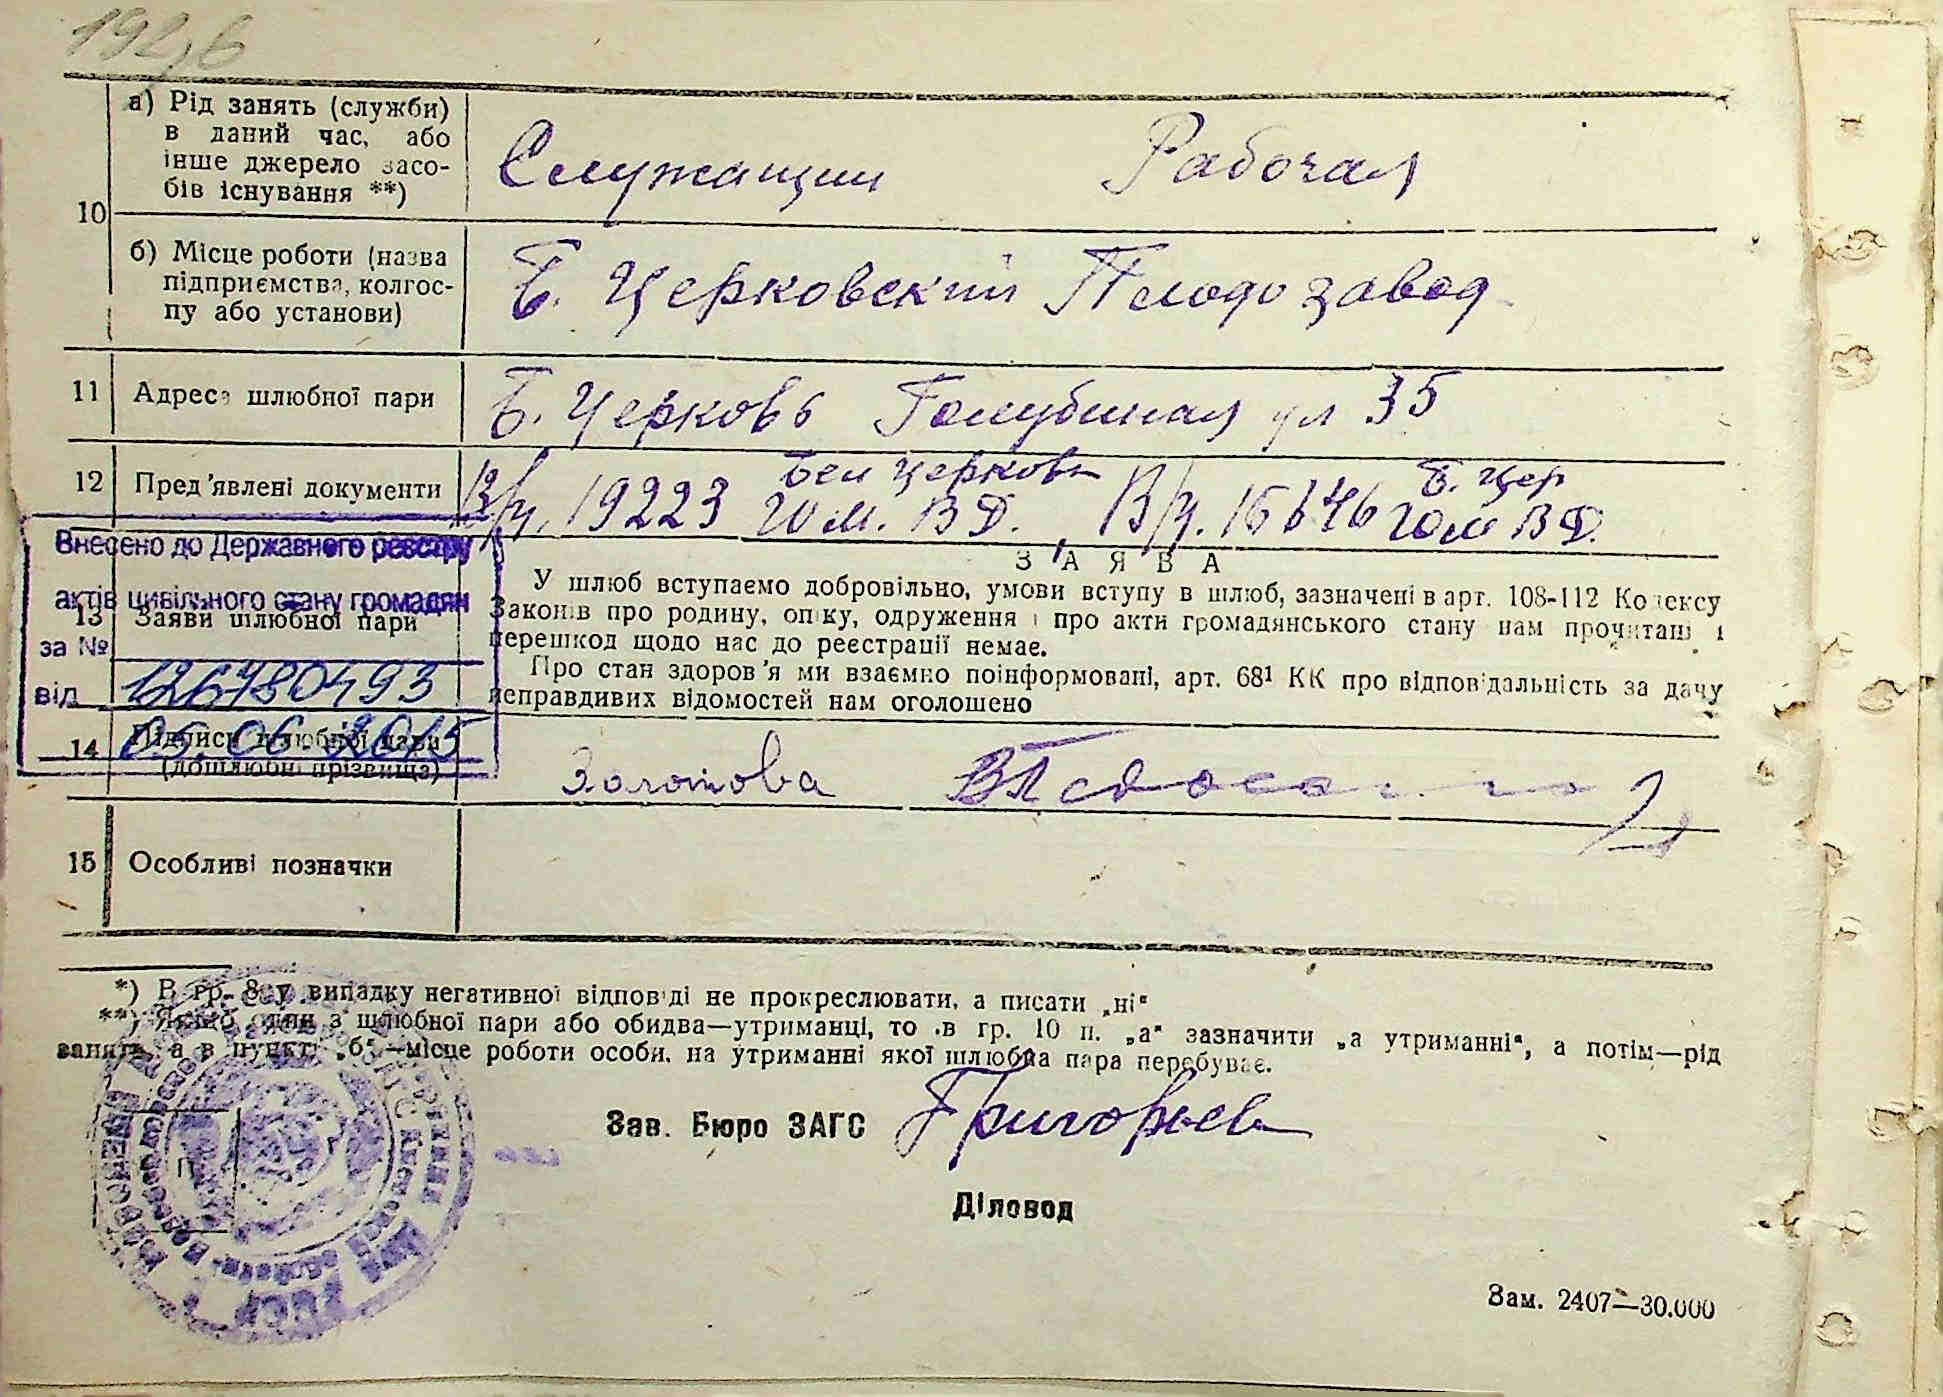 192,6
а) Рід занять (служби)
в даний час, або
інше джерело засо-
бів існування **)
Служащий Рабочая
10
б) Місце роботи (назва
підприємства, колгос-
пу або установи)
Б. Церковский Плодозавод
11 Адреса шлюбної пари
Б. Церковь Голубиная ул 35
12 Пред'явлені документи
Бел церковь Б. Цер
19223 ГОМ. ВД. ГОМ ВД.
Внесено до Державного реєстру
актів цивільного стану громадян
за №
від 126780493
05.06.2015
13 Заяви шлюбної пари
З А Я В А
У шлюб вступаємо добровільно, умови вступу в шлюб, зазначені в арт. 108-112 Кодексу
Законів про родину, опіку, одруження і про акти громадянського стану нам прочитані і
перешкод щодо нас до реєстрації немає.
Про стан здоров'я ми взаємно поінформовані, арт. 68¹ КК про відповідальність за дачу
неправдивих відомостей нам оголошено
14 Підписи шлюбної пари
(дошлюбні прізвища)
Золотова
15 Особливі позначки
*) В гр. 8 у випадку негативної відповіді не прокреслювати, а писати „ні“
**) Якщо один з шлюбної пари або обидва—утриманці, то в гр. 10 п. „а“ зазначити „а утриманні“, а потім—рід
занять, а в пункті „б“—місце роботи особи, на утриманні якої шлюбна пара перебуває.
Зав. Бюро ЗАГС Григорьев
Діловод
Зам. 2407—30.000